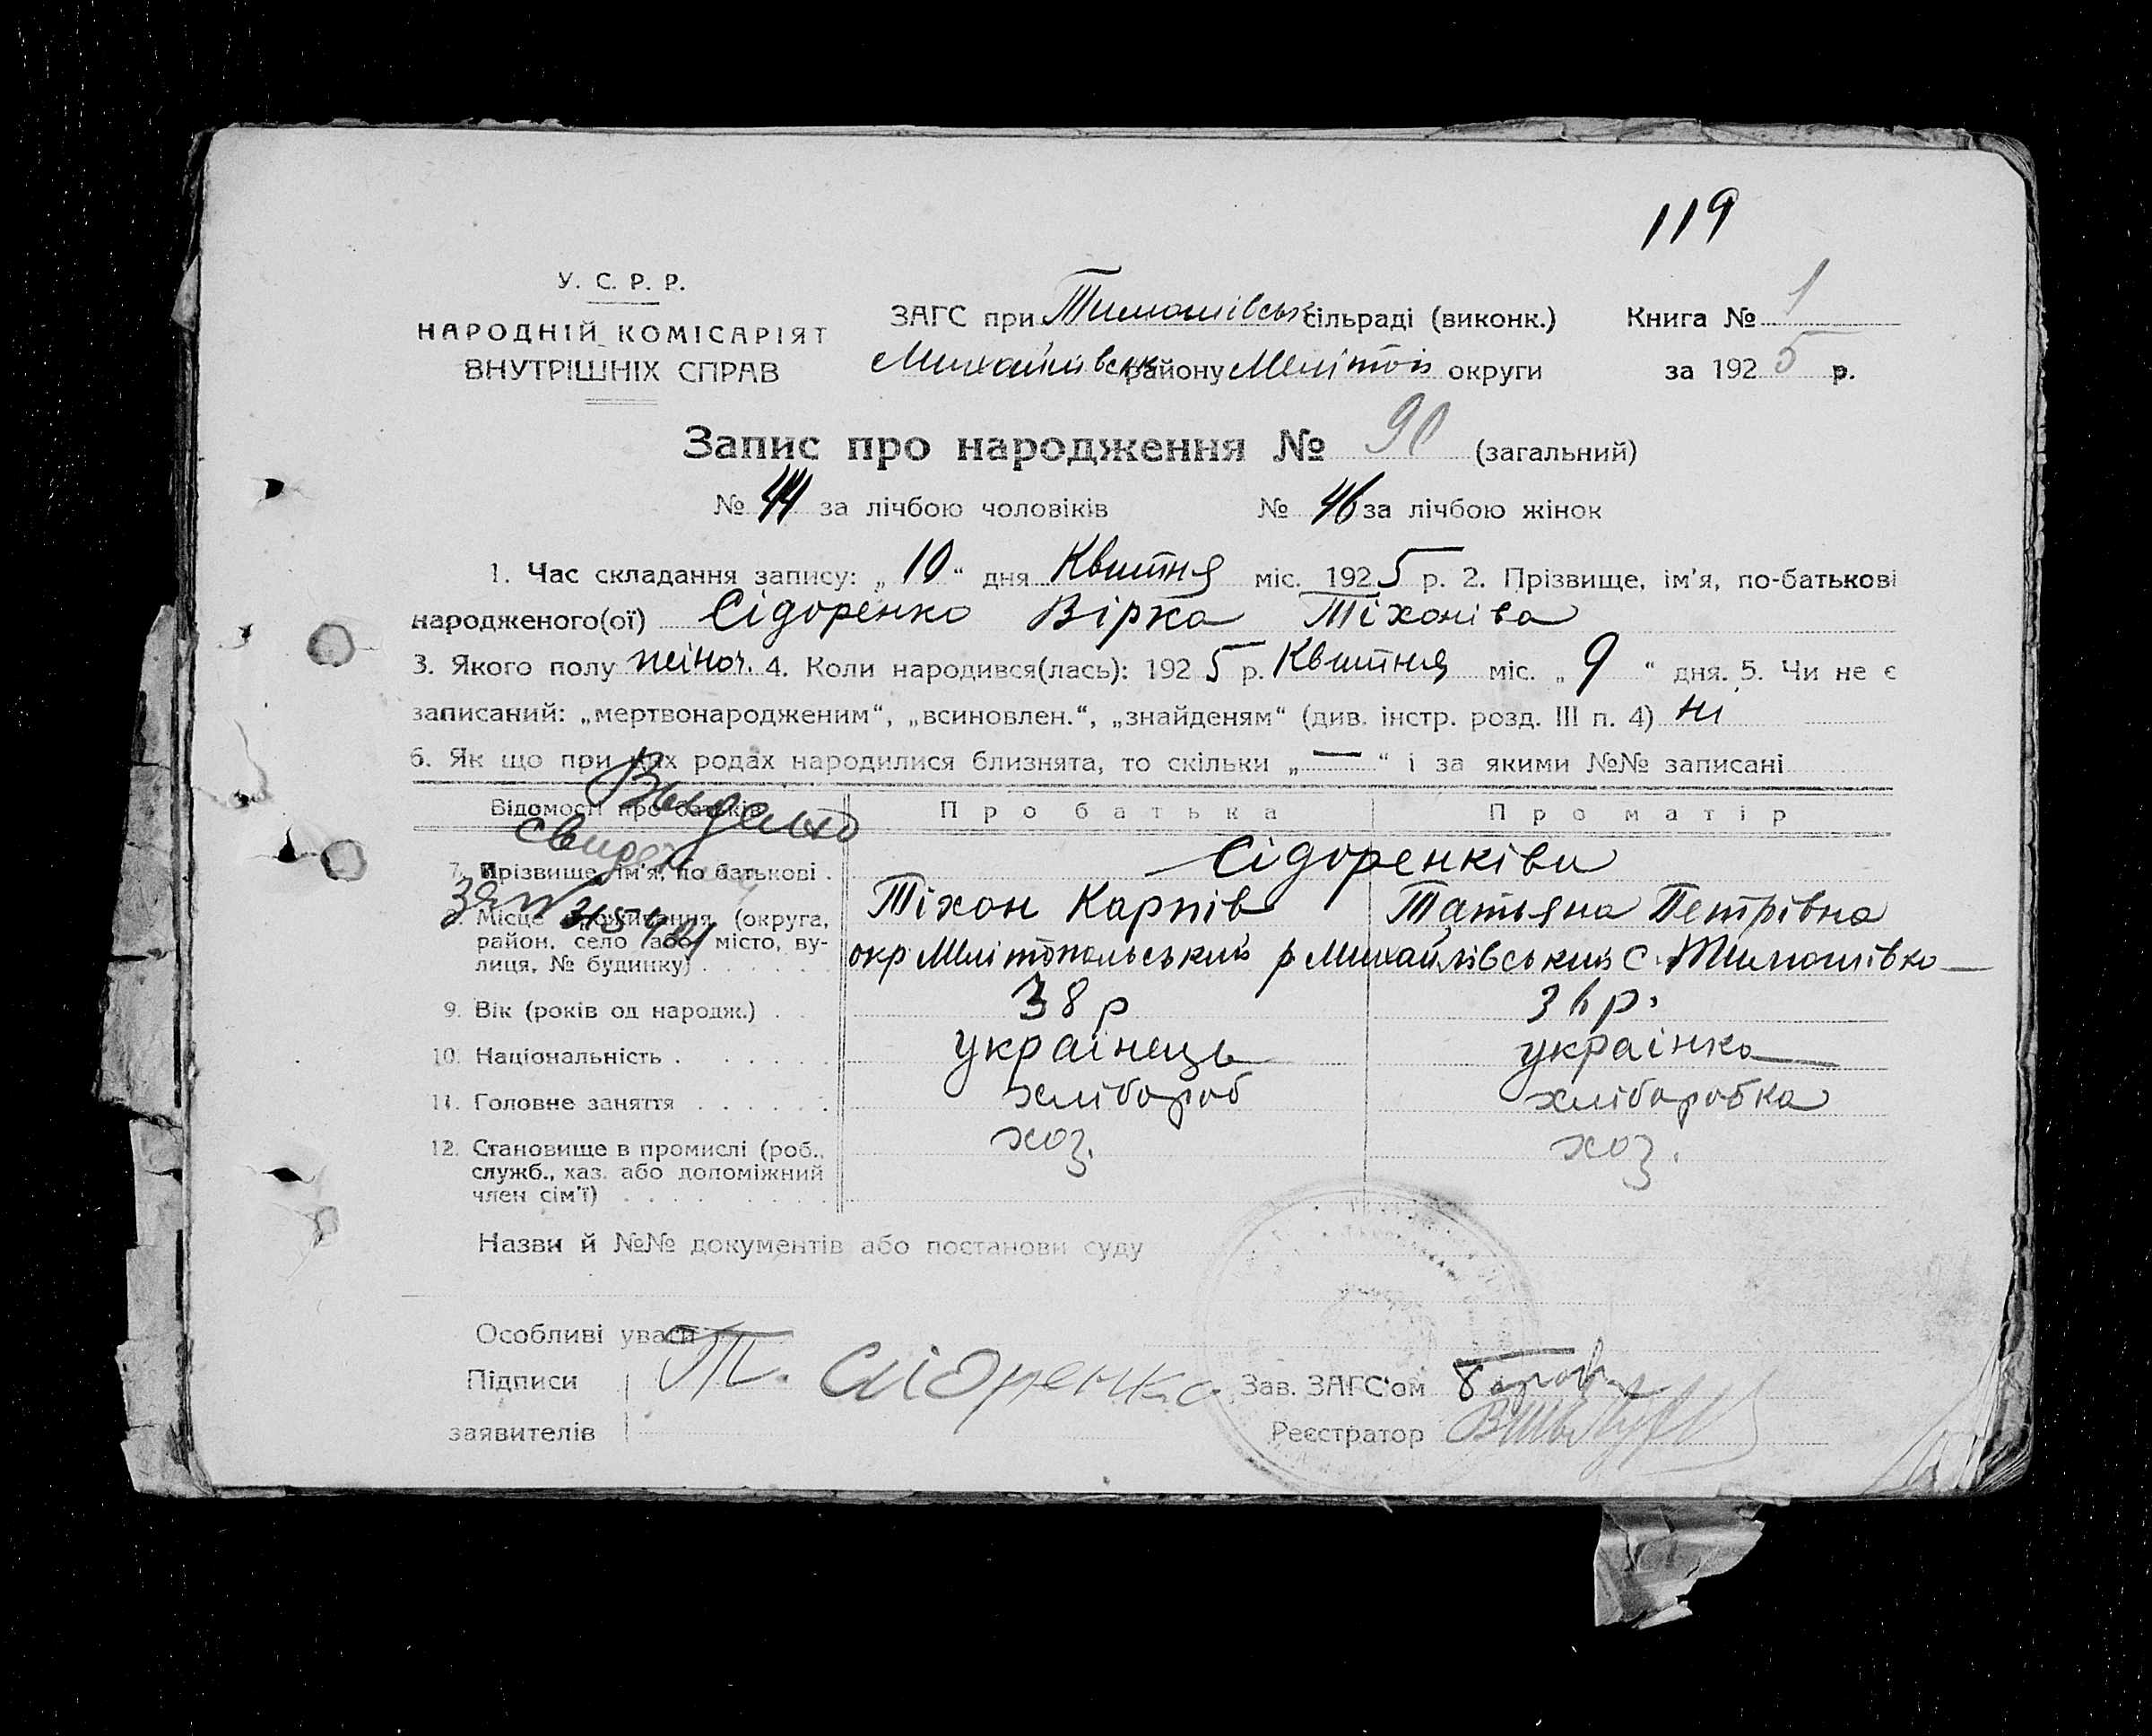 119
У. С. Р. Р.
НАРОДНІЙ КОМІСАРІЯТ
ВНУТРІШНІХ СПРАВ
ЗАГС при Тимошівськ сільраді (виконк.)
Михайлівськ району Меліпоп округи
Книга № 1
за 1925 р.
Запис про народження № 90 (загальний)
№ 44 за лічбою чоловіків № 46 за лічбою жінок
1. Час складання запису: „10“ дня Квитня міс. 1925 р. 2. Прізвище, ім'я, по-батькові
народженого(ої) Сідоренко Вірка Тіхонівa
3. Якого полу жіноч. 4. Коли народився(лась): 1925 р. Квитня міс. „9“ дня. 5. Чи не є
записаний: „мертвонародженим“, „всиновлен.“, „знайденям“ (див. інстр. розд. III п. 4) ні
6. Як що при цих родах народилися близнята, то скільки „—“ і за якими №№ записані
Відомості про батьків Про батька Про матір
Выдано
7. Прізвище, ім'я, по батькові . Сідоренківи
Тіхон Карпів Татьяна Петрівна
8. Місце проживання (округа,
район, село або місто, ву-
лиця, № будинку) . окр Мелітопольський р Михайлівський с. Тимошівка
9. Вік (років од народж.) . . 38 р 36 р.
10. Національність . українець українка
11. Головне заняття . хлібороб хліборобка
12. Становище в промислі (роб.,
служб., хаз. або допоміжний
член сім'ї) . хоз. хоз.
Назви й №№ документів або постанови суду
Особливі уваги
Підписи
заявителів
Т. Сидоренко
Зав. ЗАГС'ом
Реєстратор